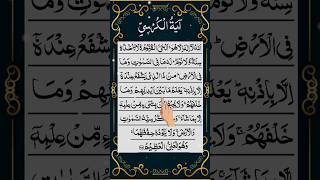 آيَةُ الْكُرْسِيِّ
اَللّٰهُ لَاۤ اِلٰهَ اِلَّا هُوَ الْحَیُّ الْقَیُّوْمُ لَا تَاْخُذُهٗ
سِنَةٌ وَّلَا نَوْمٌ لَهٗ مَا فِی السَّمٰوٰتِ وَمَا
فِی الْاَرْضِ مَنْ ذَا الَّذِیْ یَشْفَعُ عِنْدَهٗۤ
اِلَّا بِاِذْنِهٖ یَعْلَمُ مَا بَیْنَ اَیْدِیْهِمْ وَمَا
خَلْفَهُمْ وَلَا یُحِیْطُوْنَ بِشَیْءٍ مِّنْ عِلْمِهٖۤ
اِلَّا بِمَا شَآءَ وَسِعَ كُرْسِیُّهُ السَّمٰوٰتِ
وَالْاَرْضَ وَلَا یَـُٔوْدُهٗ حِفْظُهُمَا
وَهُوَ الْعَلِیُّ الْعَظِیْمُ